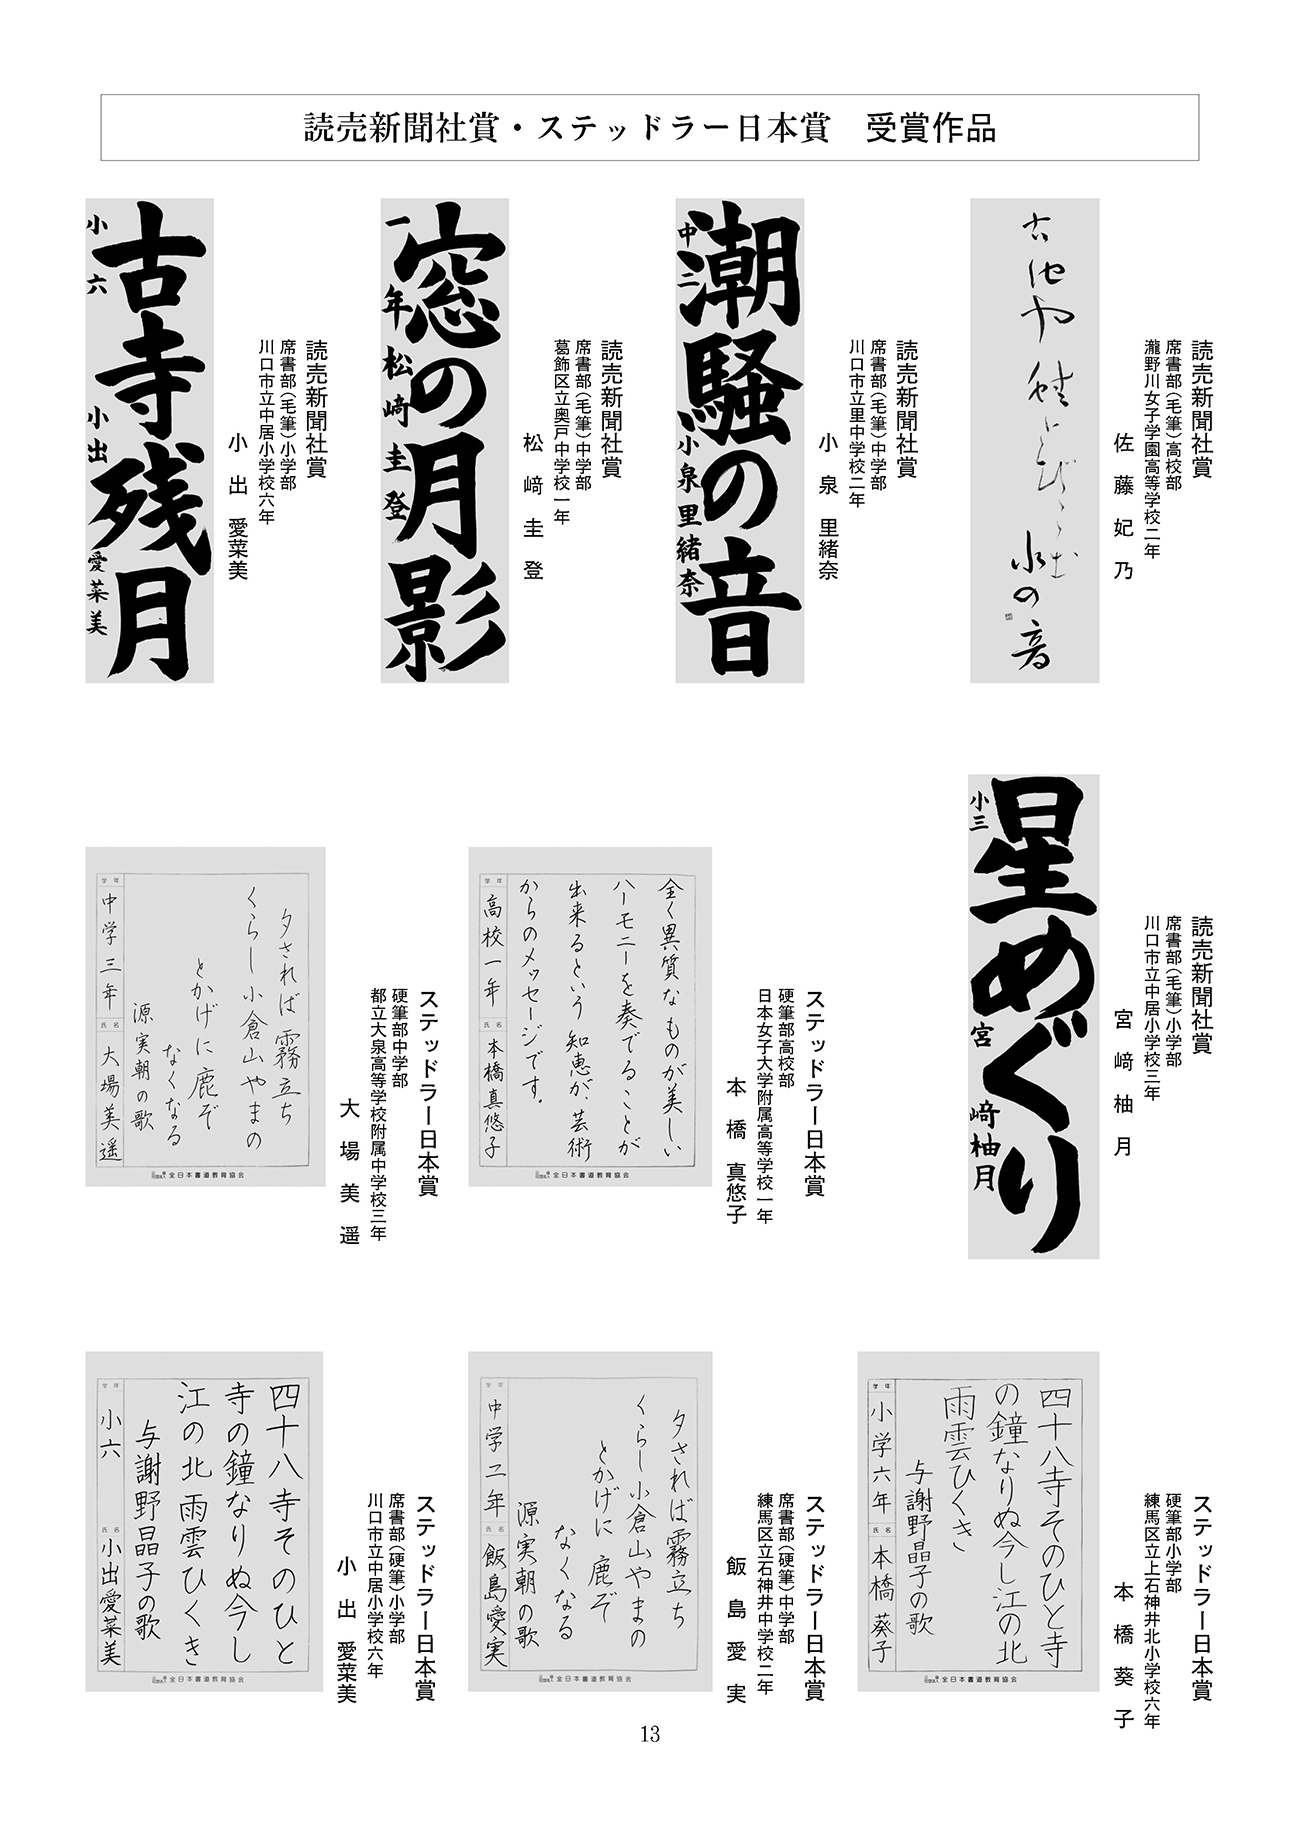 読売新聞社賞・ステッドラー日本賞　受賞作品
読売新聞社賞
席書部（毛筆）高校部
瀧野川女子学園高等学校二年
佐藤妃乃
古池や
蛙とびこむ
水の音
読売新聞社賞
席書部（毛筆）中学部
川口市立里中学校二年
小泉里緒奈
潮騒の音
中二 小泉里緒奈
読売新聞社賞
席書部（毛筆）中学部
葛飾区立奥戸中学校一年
松﨑圭登
窓の月影
一年 松﨑圭登
読売新聞社賞
席書部（毛筆）小学部
川口市立中居小学校六年
小出愛菜美
古寺残月
小六 小出愛菜美
読売新聞社賞
席書部（毛筆）小学部
川口市立中居小学校三年
宮﨑柚月
星めぐり
小三 宮﨑柚月
ステッドラー日本賞
硬筆部高校部
日本女子大学附属高等学校一年
本橋真悠子
全く異質なものが美しい
ハーモニーを奏でることが
出来るという知恵が、芸術
からのメッセージです。
学年 高校一年 氏名 本橋真悠子
公益社団法人 全日本書道教育協会
ステッドラー日本賞
硬筆部中学部
都立大泉高等学校附属中学校三年
大場美遥
夕されば霧立ち
くらし小倉山やまの
とかげに鹿ぞ
なくなる
源実朝の歌
学年 中学三年 氏名 大場美遥
公益社団法人 全日本書道教育協会
ステッドラー日本賞
硬筆部小学部
練馬区立上石神井北小学校六年
本橋葵子
四十八寺そのひと寺
の鐘なりぬ今し江の北
雨雲ひくき
与謝野晶子の歌
学年 小学六年 氏名 本橋葵子
公益社団法人 全日本書道教育協会
ステッドラー日本賞
席書部（硬筆）中学部
練馬区立石神井中学校二年
飯島愛実
夕されば霧立ち
くらし小倉山やまの
とかげに鹿ぞ
なくなる
源実朝の歌
学年 中学二年 氏名 飯島愛実
公益社団法人 全日本書道教育協会
ステッドラー日本賞
席書部（硬筆）小学部
川口市立中居小学校六年
小出愛菜美
四十八寺そのひと
寺の鐘なりぬ今し
江の北雨雲ひくき
与謝野晶子の歌
学年 小六 氏名 小出愛菜美
公益社団法人 全日本書道教育協会
13